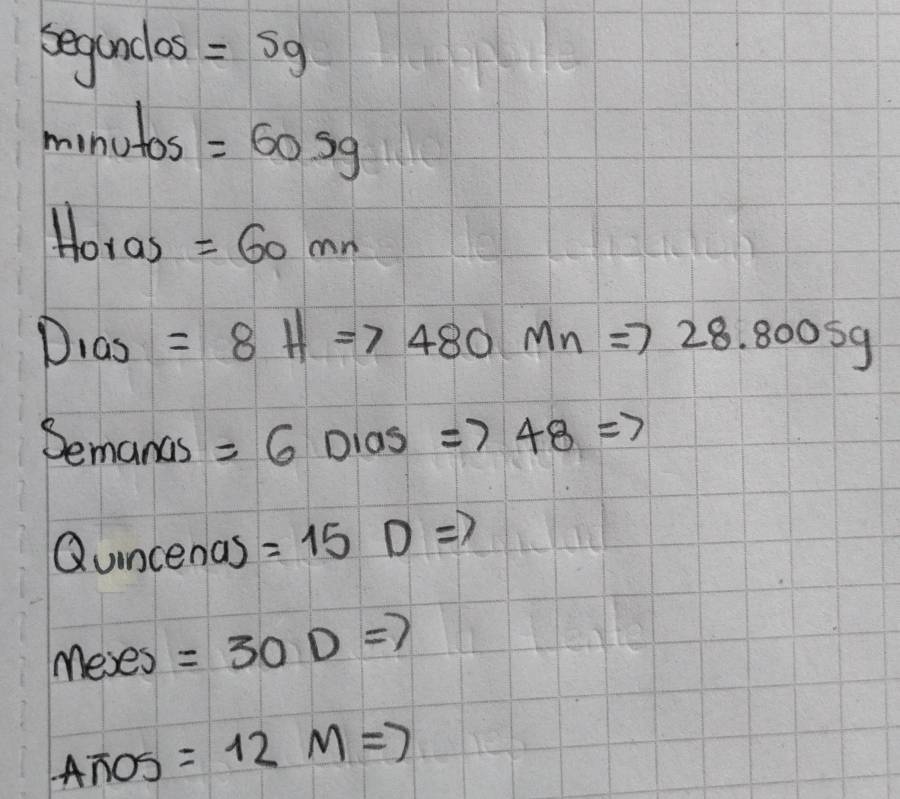 segundos = sg
minutos = 60 sg
Horas = 60 mn
Dias = 8 H => 480 Mn => 28.800 sg
Semanas = 6 Dias => 48 =>
Quincenas = 15 D =>
Meses = 30 D =>
Años = 12 M =>